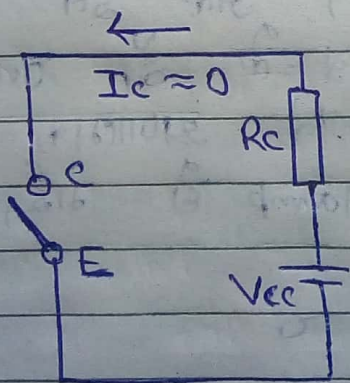 Ic ≈ 0
Rc
C
E
Vcc